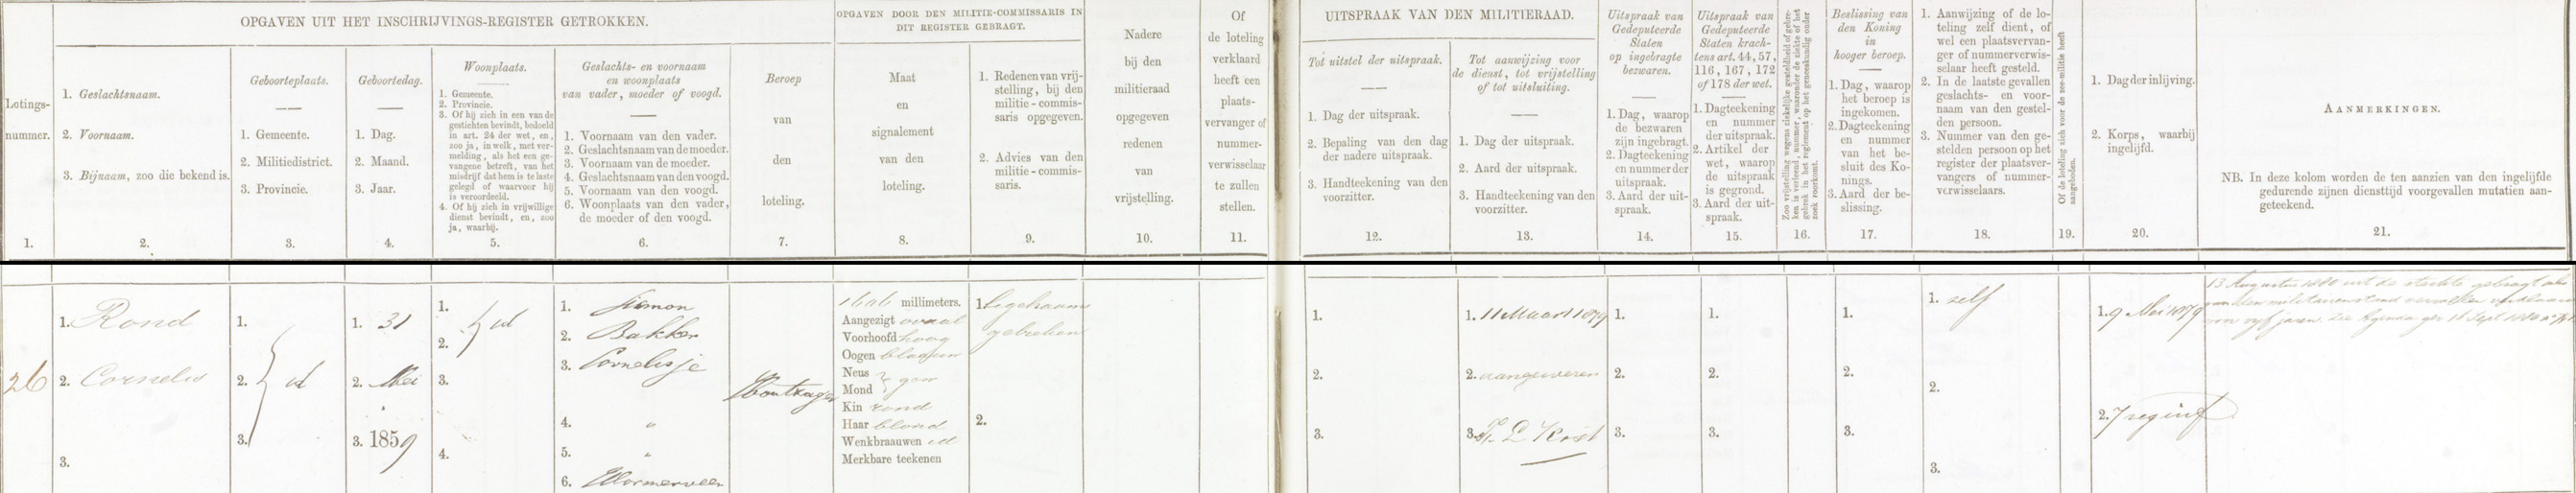 OPGAVEN UIT HET INSCHRIJVINGS-REGISTER GETROKKEN.
Lotings-
nummer.
1.
1. Geslachtsnaam.
2. Voornaam.
3. Bijnaam, zoo die bekend is.
2.
Geboorteplaats.
1. Gemeente.
2. Militiedistrict.
3. Provincie.
3.
Geboortedag.
1. Dag.
2. Maand.
3. Jaar.
4.
Woonplaats.
1. Gemeente.
2. Provincie.
3. Of hij zich in een van de
gestichten bevindt, bedoeld
in art. 24 der wet, en,
zoo ja, in welk, met ver-
melding, als het een ge-
vangene betreft, van het
misdrijf dat hem is te laste
gelegd of waarvoor hij
is veroordeeld.
4. Of hij zich in vrijwillige
dienst bevindt, en, zoo
ja, waarbij.
5.
Geslachts- en voornaam
en woonplaats
van vader, moeder of voogd.
1. Voornaam van den vader.
2. Geslachtsnaam van de moeder.
3. Voornaam van de moeder.
4. Geslachtsnaam van den voogd.
5. Voornaam van den voogd.
6. Woonplaats van den vader,
de moeder of den voogd.
6.
Beroep
van
den
loteling.
7.
OPGAVEN DOOR DEN MILITIE-COMMISSARIS IN
DIT REGISTER GEBRAGT.
Maat
en
signalement
van den
loteling.
8.
1. Redenen van vrij-
stelling, bij den
militie-commis-
saris opgegeven.
2. Advies van den
militie-commis-
saris.
9.
Nadere
bij den
militieraad
opgegeven
redenen
van
vrijstelling.
10.
Of
de loteling
verklaard
heeft een
plaats-
vervanger of
nummer-
verwisselaar
te zullen
stellen.
11.
UITSPRAAK VAN DEN MILITIERAAD.
Tot uitstel der uitspraak.
1. Dag der uitspraak.
2. Bepaling van den dag
der nadere uitspraak.
3. Handteekening van den
voorzitter.
12.
Tot aanwijzing voor
de dienst, tot vrijstelling
of tot uitsluiting.
1. Dag der uitspraak.
2. Aard der uitspraak.
3. Handteekening van den
voorzitter.
13.
Uitspraak van
Gedeputeerde
Staten
op ingebragte
bezwaren.
1. Dag, waarop
de bezwaren
zijn ingebragt.
2. Dagteekening
en nummer der
uitspraak.
3. Aard der uit-
spraak.
14.
Uitspraak van
Gedeputeerde
Staten krach-
tens art. 44, 57,
116, 167, 172
of 178 der wet.
1. Dagteekening
en nummer
der uitspraak.
2. Artikel der
wet, waarop
de uitspraak
is gegrond.
3. Aard der uit-
spraak.
15.
Zoo vrijstelling wegens ziekelijke gesteldheid of gebre-
ken is verleend, nummer, waaronder de ziekte of het
gebrek in het reglement op het geneeskundig onder
zoek voorkomt.
16.
Beslissing van
den Koning
in
hooger beroep.
1. Dag, waarop
het beroep is
ingekomen.
2. Dagteekening
en nummer
van het be-
sluit des Ko-
nings.
3. Aard der be-
slissing.
17.
1. Aanwijzing of de lo-
teling zelf dient, of
wel een plaatsvervan-
ger of nummerverwis-
selaar heeft gesteld.
2. In de laatste gevallen
geslachts- en voor-
naam van den gestel-
den persoon.
3. Nummer van den ge-
stelden persoon op het
register der plaatsver-
vangers of nummer-
verwisselaars.
18.
Of de loteling zich voor de zee-militie heeft
aangeboden.
19.
1. Dag der inlijving.
2. Korps, waarbij
ingelijfd.
20.
AANMERKINGEN.
NB. In deze kolom worden de ten aanzien van den ingelijfde
gedurende zijnen diensttijd voorgevallen mutatiën aan-
geteekend.
21.
26
1. Rond
2. Cornelis
3.
1.
2. id
3.
1. 31
2. Mei
3. 1859
1.
2. id
3.
4.
1. Siemon
2. Bakker
3. Cornelisje
4. "
5. "
6. Wormerveer
Houtzager
1606 millimeters.
Aangezigt ovaal
Voorhoofd hoog
Oogen blaauw
Neus
Mond gew
Kin rond
Haar blond
Wenkbraauwen id
Merkbare teekenen
1. ligchaams
gebreken
2.
1.
2.
3.
1. 11 Maart 1879
2. aangewezen
3.
1.
2.
3.
1.
2.
3.
1.
2.
3.
1. zelf
2.
3.
1. 9 Mei 1879
2. 7 reg inf
13 Augustus 1880 uit de sterkte gebragt als
van den militairenstand vervallen verklaard
voor vijf jaren. Zie Agenda